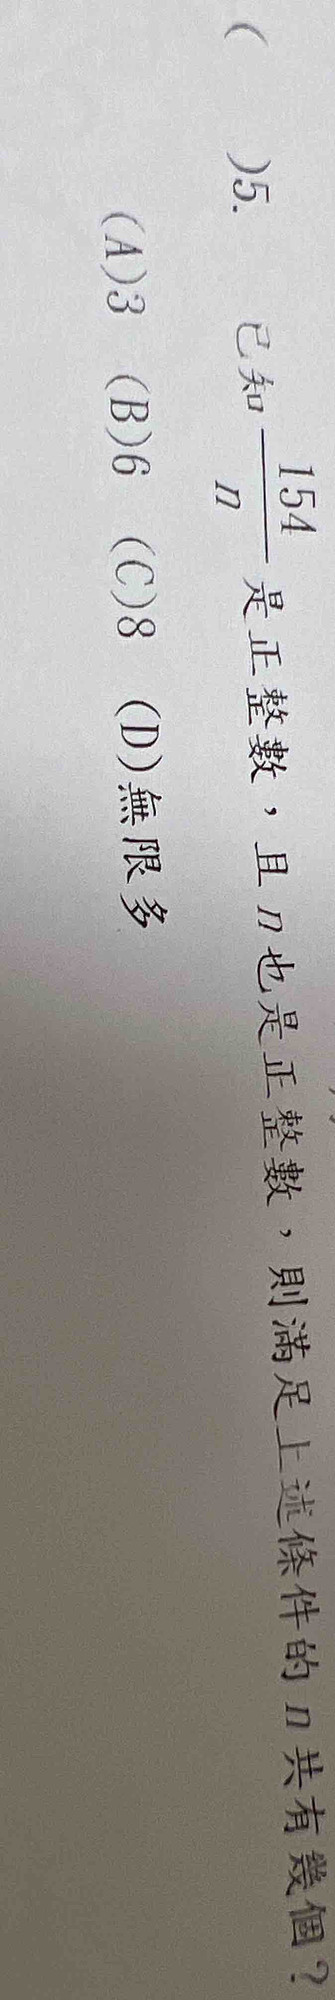 (　　)5. 已知 154/n 是正整數，且 n 也是正整數，則滿足上述條件的 n 共有幾個？
(A)3 (B)6 (C)8 (D)無限多